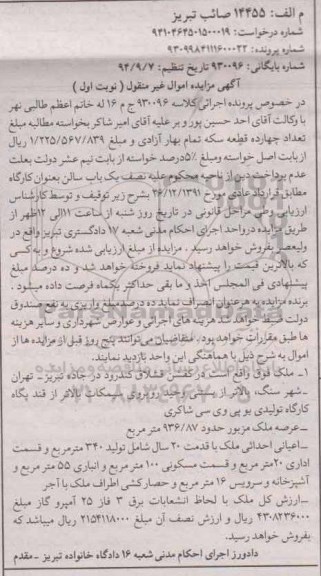 م الف: ۱۴۴۵۵ صائب تبریز
شماره درخواست: ۹۳۱۰۴۶۴۵۰۱۵۰۰۰۱۹
شماره پرونده: ۹۳۰۹۹۸۴۱۱۱۶۰۰۰۲۲
شماره بایگانی: ۹۳۰۰۹۶ تاریخ تنظیم: ۹۴/۹/۷
آگهی مزایده اموال غیر منقول ( نوبت اول )
در خصوص پرونده اجرائی کلاسه ۹۳۰۰۹۶ ج م ۱۶ له خانم اعظم طالبی نهر
با وکالت آقای احد حسین پور و بر علیه آقای امیر شاکر بخواسته مطالبه مبلغ
تعداد چهارده قطعه سکه تمام بهار آزادی و مبلغ ۱/۲۲۵/۵۶۷/۸۳۹ ریال
از بابت اصل خواسته ومبلغ ۵٪درصد خواسته از بابت نیم عشر دولت بعلت
عدم پرداخت دین از ناحیه محکوم علیه نصف یک باب سالن بعنوان کارگاه
مطابق قرارداد عادی مورخ ۲۶/۱۲/۱۳۹۱ بشرح زیر توقیف و توسط کارشناس
ارزیابی وطی مراحل قانونی در تاریخ روز شنبه از ساعت ۱۱الی ۱۲ظهر از
طریق مزایده درواحد اجرای احکام مدنی شعبه ۱۷ دادگستری تبریز واقع در
ولیعصر بفروش خواهد رسید . مزایده از مبلغ ارزیابی شده شروع و به کسی
که بالاترین قیمت را پیشنهاد نماید فروخته خواهد شد و ده درصد مبلغ
پیشنهادی فی المجلس اخذ و ما بقی حداکثر یکماه فرصت داده میشود .
برنده مزایده به هر عنوان انصراف نماید ده درصد مبلغ واریزی به نفع صندوق
دولت ضبط خواهد شد هزینه های اجرائی و عوارض شهرداری و سایر هزینه
ها طبق مقررات خواهد بود. متقاضیان می توانند پنج روز قبل از مزایده ها از
اموال به شرح ذیل با هماهنگی این واحد بازدید نمایند.
۱- ملک فوق واقع است در کفش قشلاق کندرود در جاده تبریز - تهران
-شهر سنگ، بالاتر از بستنی وحید روبروی سیمکات بالاتر از قند پگاه
کارگاه تولیدی یو پی وی سی شاکری
-عرصه ملک مزبور حدود ۹۳۶/۸۷ متر مربع
-اعیانی احداثی ملک با قدمت ۲۰ سال شامل تولید ۳۴۰ مترمربع و قسمت
اداری ۲۰متر مربع و قسمت مسکونی ۱۰۰ متر مربع و انباری ۵۵ متر مربع و
آشپزخانه و سرویس ۱۶ متر مربع و حصارکشی اطراف ملک با آجر
-ارزش کل ملک با لحاظ انشعابات برق ۳ فاز ۲۵ آمپرو گاز مبلغ
۴۳۰۸۲۳۶۰۰۰ ریال و ارزش نصف آن مبلغ ۲۱۵۴۱۱۸۰۰۰ ریال میباشد که
بفروش خواهد رسید.
دادورز اجرای احکام مدنی شعبه ۱۶ دادگاه خانواده تبریز - مقدم